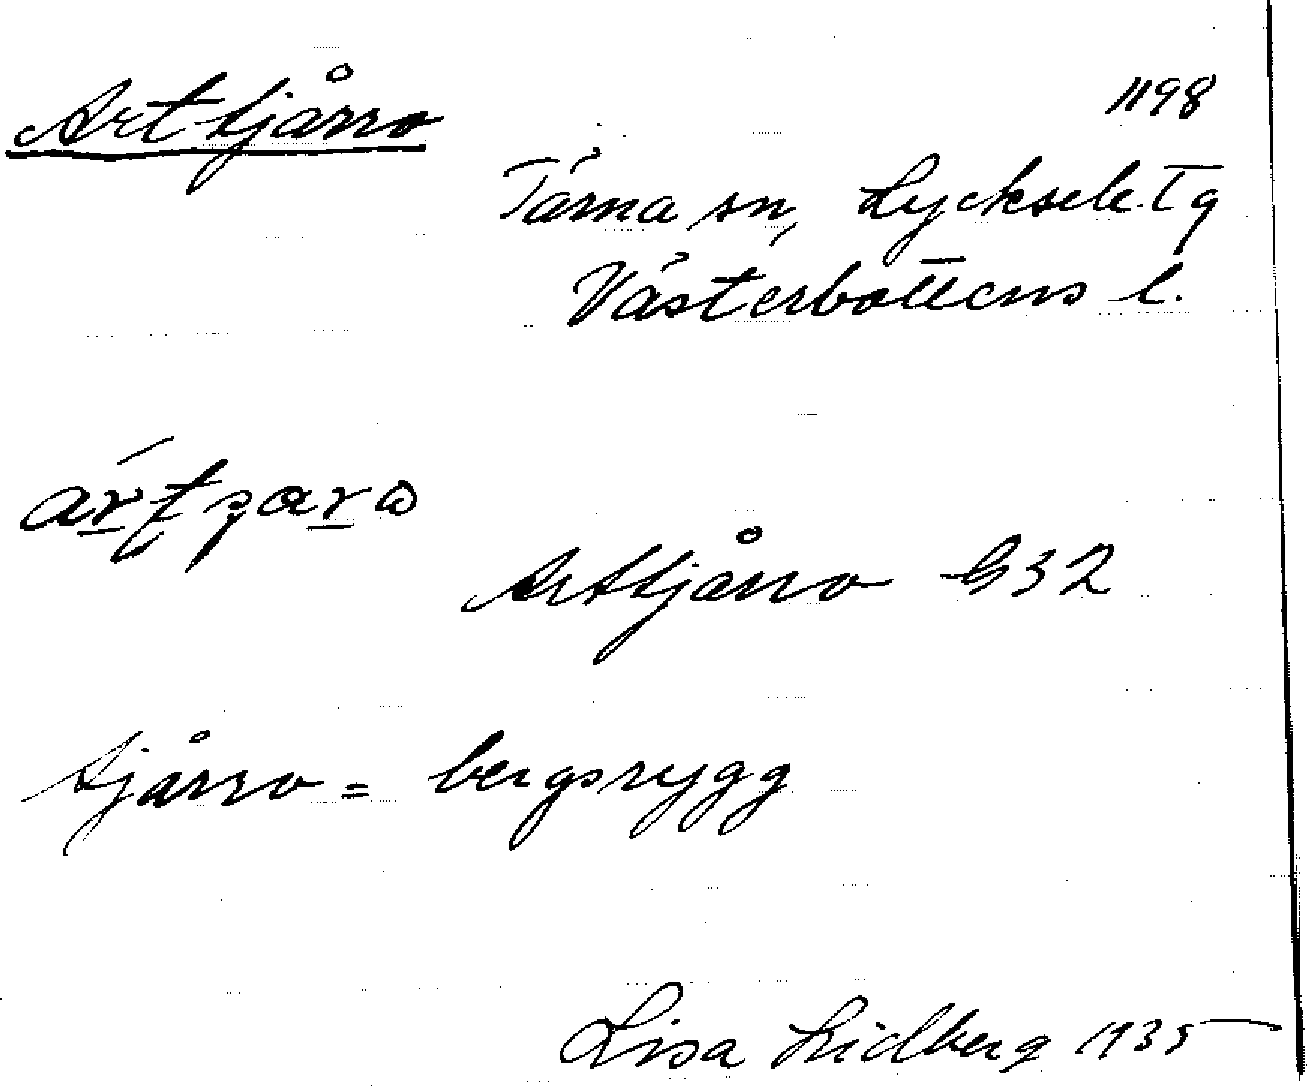 Art-tjårro
1198
Tärna sn, Lycksele Tg
Västerbottens l.
Arttjårro G32
tjårro = bergsrygg
Lisa Lidberg 1935